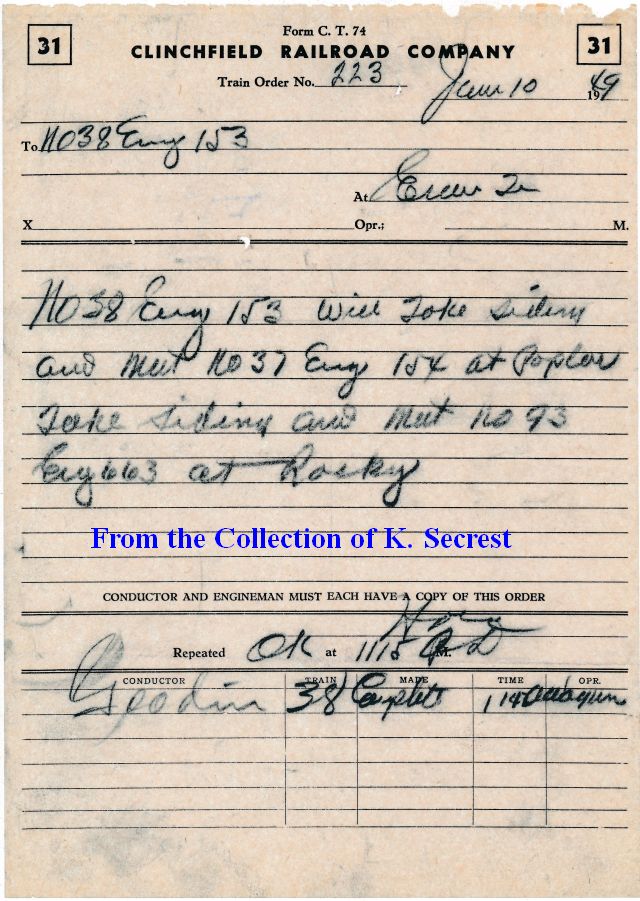 31
Form C. T. 74
31
CLINCHFIELD RAILROAD COMPANY
Train Order No. 223
10 1949
To No 38 Eng 153
At
X Opr.; M.
No 38 Eng 153 Will Take Siding
and Meet No 37 Eng 154 at Poplar
Take Siding and Meet No 93
Eng 663 at Rocky
From the Collection of K. Secrest
CONDUCTOR AND ENGINEMAN MUST EACH HAVE A COPY OF THIS ORDER
Repeated OK at 1115 M.
CONDUCTOR TRAIN MADE TIME OPR.
38 Complete